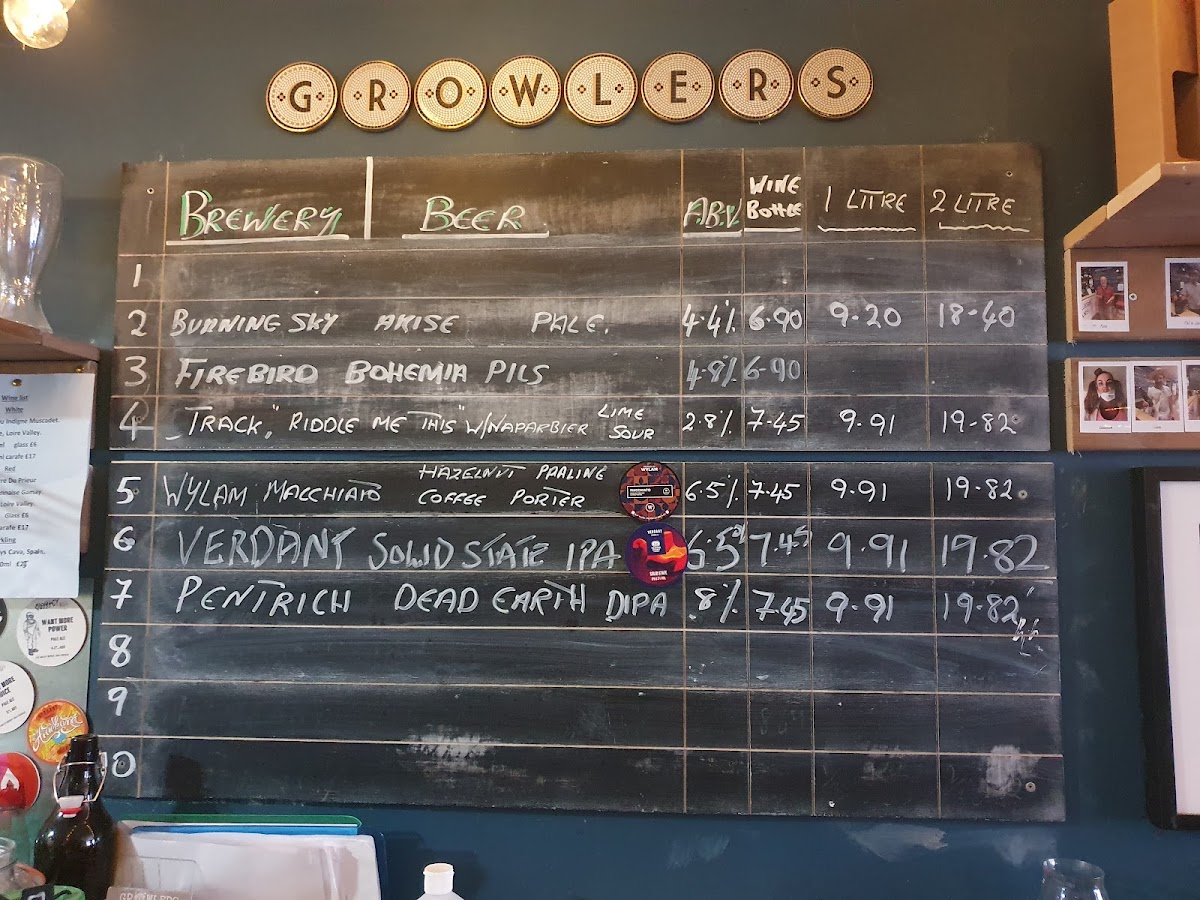 GROWLERS
BREWERY BEER A.B.V. WINE BOTTLE 1 LITRE 2 LITRE
1
2 BURNING SKY ARISE PALE. 4.4% 6.90 9.20 18.40
3 FIREBIRD BOHEMIA PILS 4.8% 6.90
4 TRACK, "RIDDLE ME THIS" W/NAPARBIER LIME SOUR 2.8% 7.45 9.91 19.82
5 WYLAM MACCHIATO HAZELNUT PRALINE COFFEE PORTER 6.5% 7.45 9.91 19.82
6 VERDANT SOLID STATE IPA 6.5% 7.45 9.91 19.82
7 PENTRICH DEAD EARTH DIPA .8% 7.45 9.91 19.82
8
9
10
WYLAM
VERDANT
Wine list
White
Indigne Muscadet.
Loire Valley.
glass £6
carafe £17
Red
De Prieur
Gamay.
Loire Valley.
Glass £6
carafe £17
Cava, Spain,
WANT MORE
POWER
PALE ALE
MORE
JUICE
PALE ALE
GROWLERS